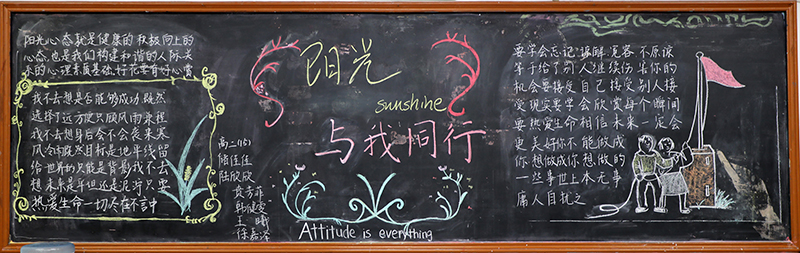 阳光心态就是健康的积极向上的
心态,也是我们构建和谐的人际关
系的心理素质基础,好花要有好心赏
我不去想是否能够成功既然
选择了远方便只顾风雨兼程
我不去想身后会不会袭来寒
风冷雨既然目标是地平线留
给世界的只能是背影我不去
想未来是平坦还是泥泞只要
热爱生命一切尽在不言中
高二(15)
陆欣欣
徐嘉泽
阳光
sunshine
与我同行
Attitude is everything
要学会忘记谅解宽容不原谅
等于给了别人继续伤害你的
机会要接受自己接受别人接
受现实要学会欣赏每个瞬间
要热爱生命相信未来一定会
更美好你不能做成
你想做成你想做的
一些事世上本无事
庸人自扰之